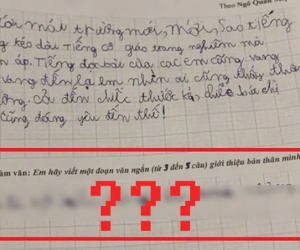 Theo Ngô Quân
mái trường mới, Một, sao tiếng
kéo dài tiếng cô giáo trang nghiêm mà
áp. Tiếng đọc bài của các em cũng vang
vang đến lạ em nhìn ai cũng thấy thâ
ơng. cả đến chiếc thước kẻ, chiếc bút chì
cũng đáng yêu đến thế!
àm văn: Em hãy viết một đoạn văn ngắn (từ 3 đến 5 câu) giới thiệu bản thân mình
???